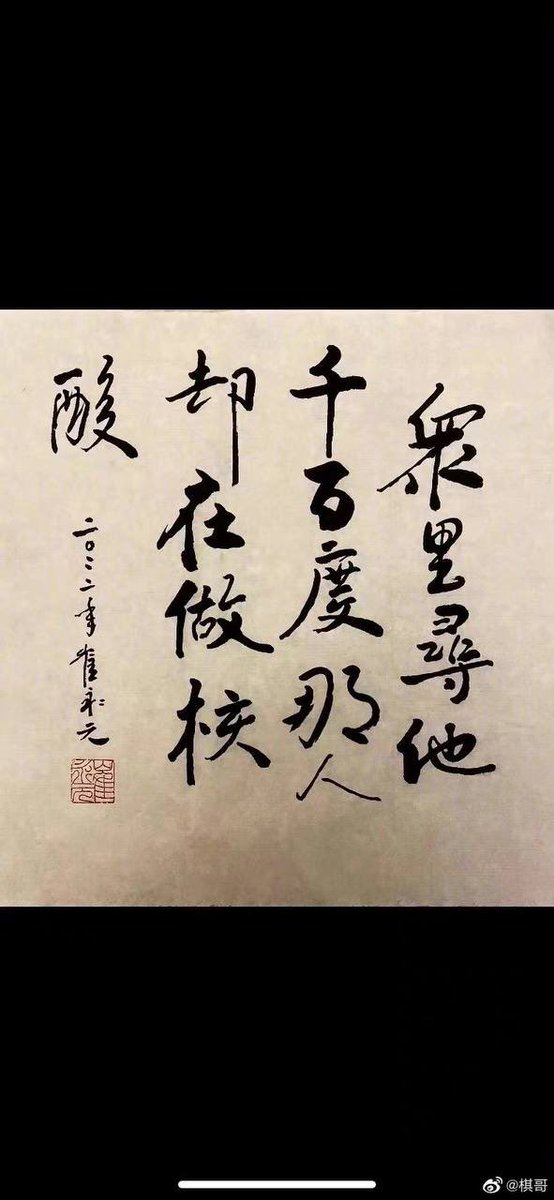 眾里尋他
千百度那人
却在做核
酸
二〇二二年崔永元
崔永元
@棋哥